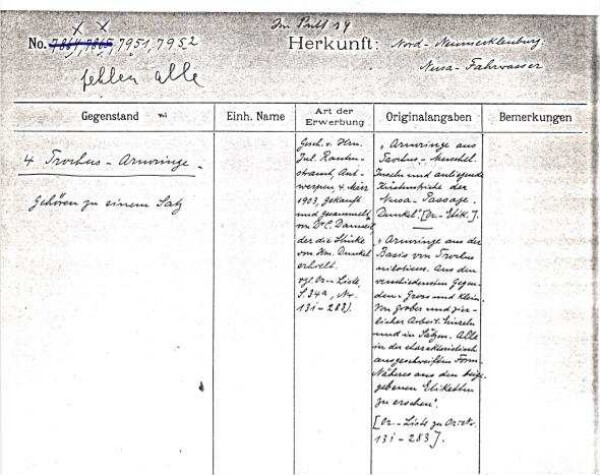 Im Pult 14
No. 7864, 7865, 7951, 7952
fehlen alle
Herkunft: Nord-Neumecklenburg
Nusa-Fahrwasser
Gegenstand
Einh. Name
Art der Erwerbung
Originalangaben
Bemerkungen
4 Trochus-Armringe
Gehören zu einem Satz
Gesch. v. Hrn.
Jul.
Antwerpen, 4. März
1903, gekauft
und gesammelt
von Dr.
der die Stücke
von Hrn. Dunkel
erhielt.
vgl. Or-Liste,
S. 34a, Nr.
131-283).
"Armringe aus
Trochus-Muschel.
Inseln und anliegende
Küstenstriche der
Nusa-Passage.
Dunkel" [Or-Etik.].
"Armringe aus der
Basis von Trochus
niloticus. Aus den
verschiedensten Gegenden
- Gross und Klein.
Von grober und zierlicher
Arbeit. Einzeln
und in Sätzen. Alle
in der charakteristisch
ausgeschweiften Form.
Näheres aus den beigegebenen
Etiketten
zu ersehen".
[Or-Liste zu Or-Nr.
131-283].